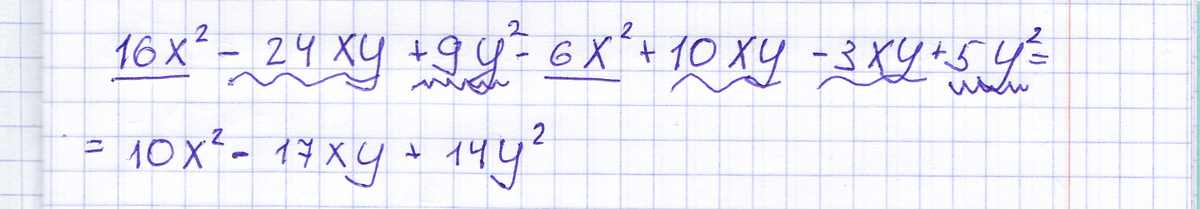 16x² - 24xy + 9y² - 6x² + 10xy - 3xy + 5y² =
= 10x² - 17xy + 14y²